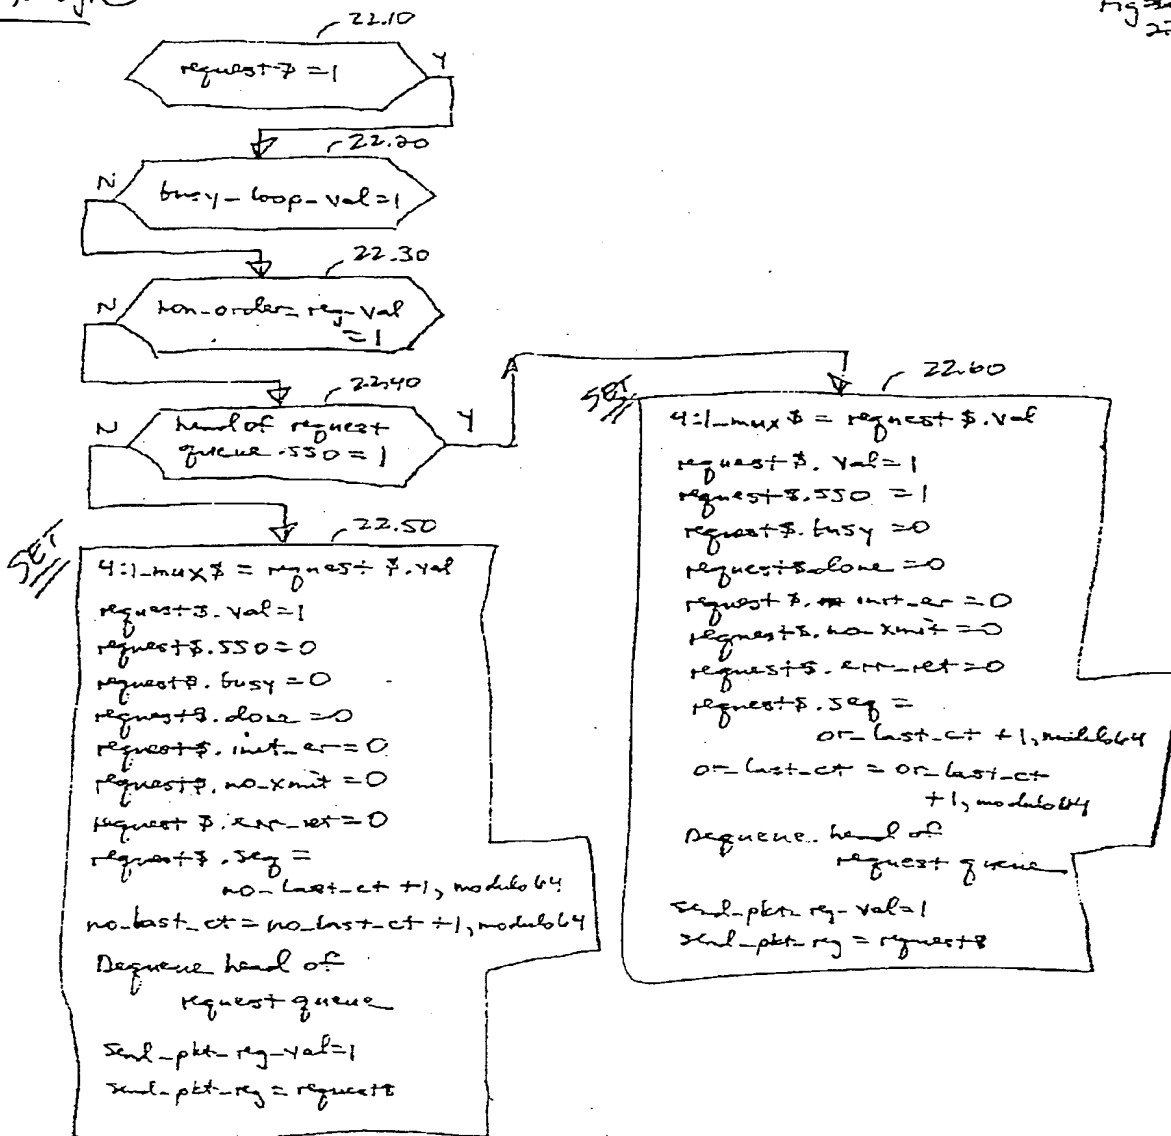 22.10
request$ = 1
Y
22.20
N
busy_loop_val=1
22.30
N
non_order_reg_val
= 1
22.40
N
head of request
queue .SSO = 1
Y
22.50
SET
4:1_mux$ = request $.val
request$.val=1
request$.SSO=0
request$.busy=0
request$.done=0
request$.init_er=0
request$.no_xmit=0
request $.err_ret=0
request$.seq =
no_last_ct +1, modulo64
no_last_ct = no_last_ct +1, modulo64
Dequeue head of
request queue
send_pkt_reg_val=1
send_pkt_reg = request$
22.60
SET
4:1_mux$ = request $.val
request$.val=1
request$.SSO =1
request$.busy =0
request$.done =0
request $. init_er =0
request$.no_xmit =0
request$.err_ret=0
request$.seq =
or_last_ct +1, modulo64
or_last_ct = or_last_ct
+1, modulo64
Dequeue head of
request queue
send_pkt_reg_val=1
send_pkt_reg = request$